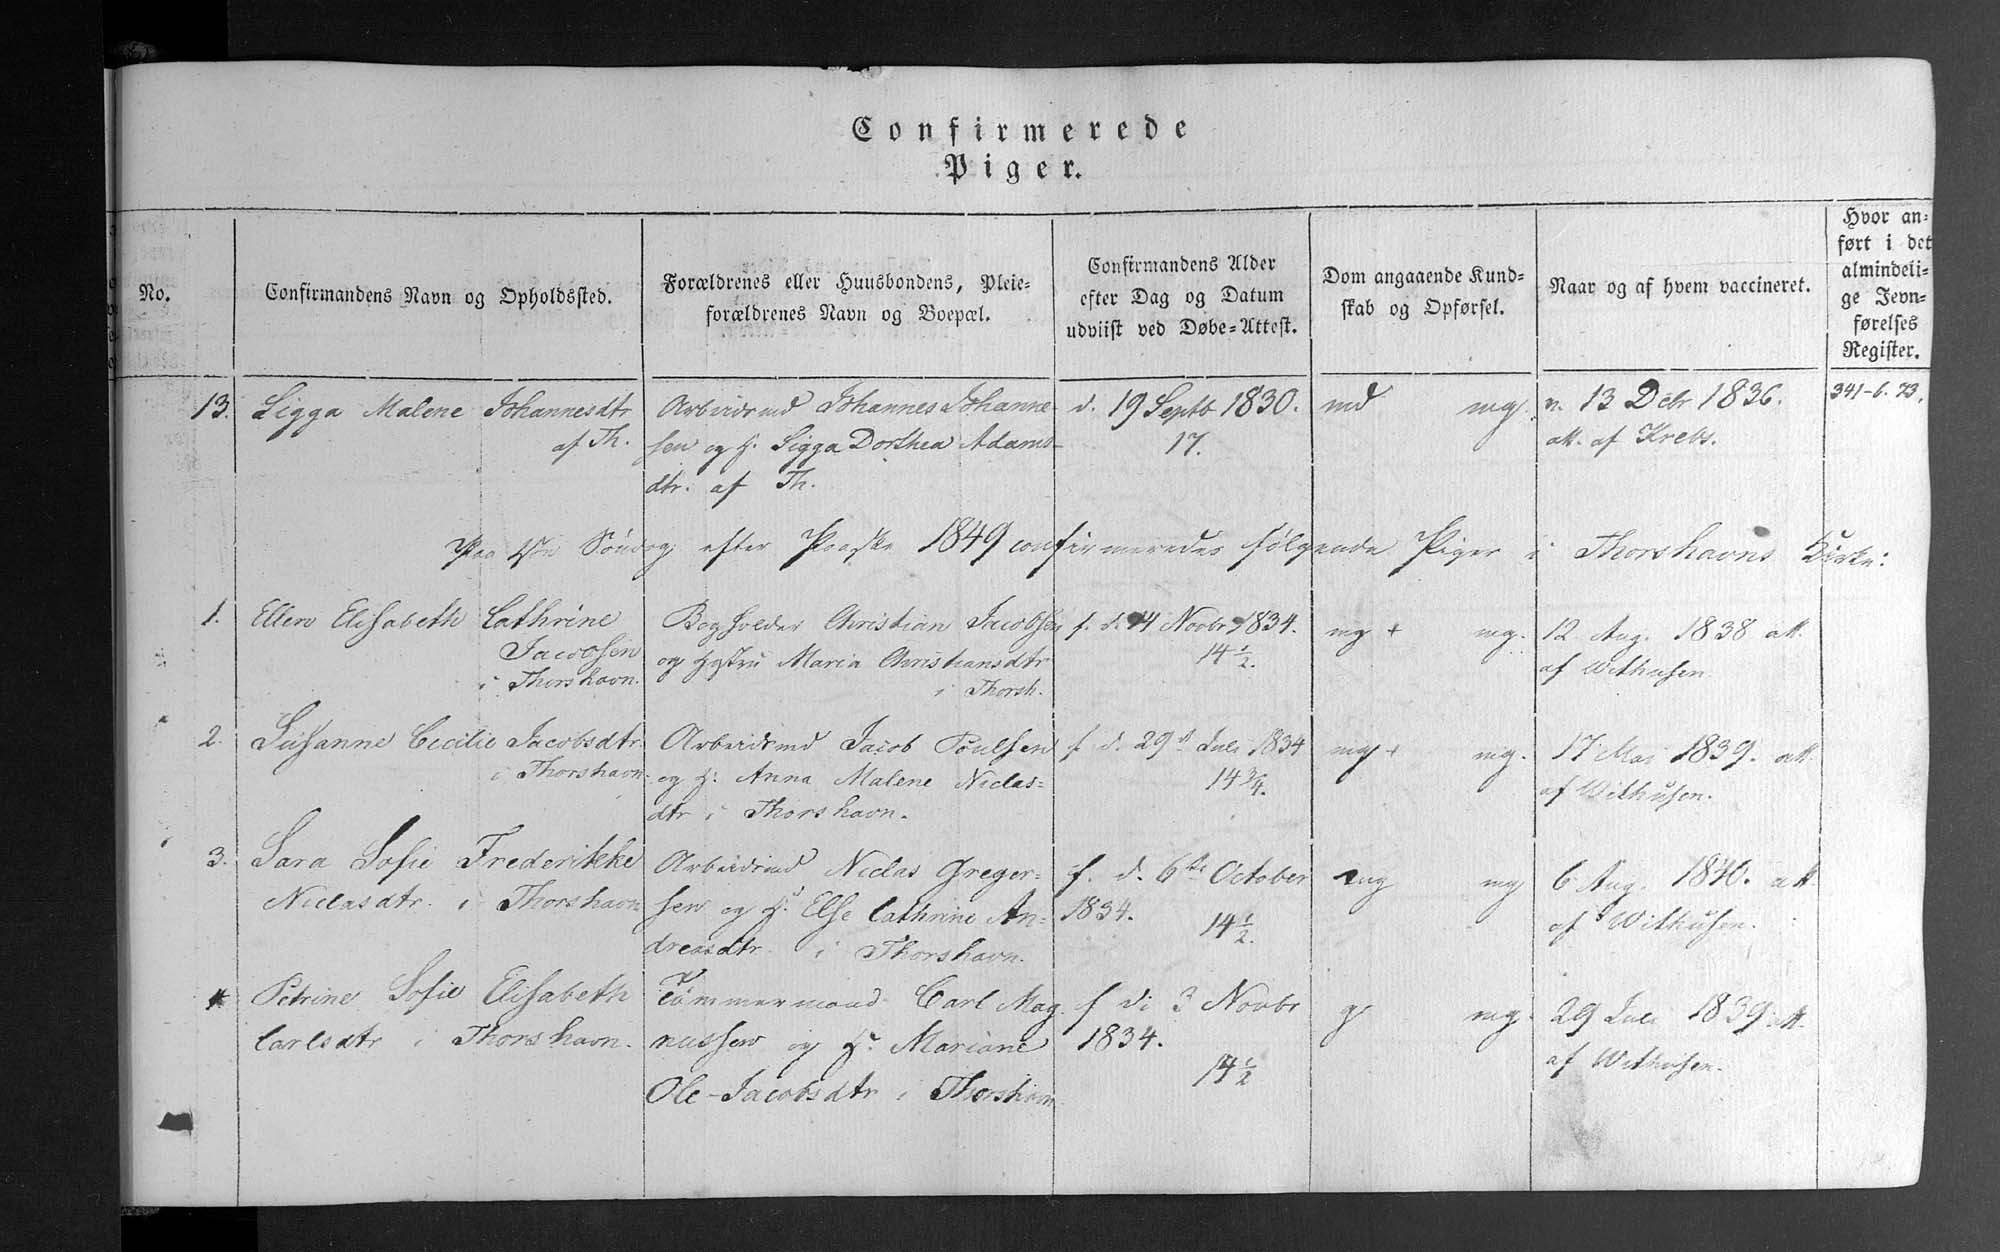 Confirmerede
Piger.
No.
Confirmandens Navn og Opholdssted.
Forældrenes eller Huusbondens, Pleie=
forældrenes Navn og Boepæl.
Confirmandens Alder
efter Dag og Datum
udviist ved Døbe=Attest.
Dom angaaende Kund=
skab og Opførsel.
Naar og af hvem vaccineret.
Hvor an=
ført i det
almindeli=
ge Jevn=
førelses
Register.
13.
Sigga Malene Johannesdtr
af Th.
Arbeidsmd Johannes Johanne-
sen og H. Sigga Dorthea Adams-
dtr. af Th.
d. 19 Septb 1830.
17.
md mg.
v. 13 Debr 1836.
att. af Krebs.
341-6. 73.
Paa Søndag efter Paaske 1849 confirmeredes følgende Piger i Thorshavns Kirke:
1.
Ellen Elisabeth Cathrine
Jacobsen
i Thorshavn.
Bogholder Christian Jacobsen
og Hstru Maria Christiansdtr
i Thorsh.
f. d. 14 Novbr 1834.
14 1/2.
mg + mg.
12 Aug. 1838 att.
af Withusen.
2.
Susanne Cecilie Jacobsdtr.
i Thorshavn.
Arbeidsmd Jacob Poulsen
og H. Anna Malene Niclas=
dtr i Thorshavn.
f. d. 29 Juli 1834
14 3/4.
mg + mg.
17 Mai 1839. att.
af Withusen.
3.
Sara Sofie Frederikke
Niclasdtr. i Thorshavn
Arbeidsmd Niclas Greger=
sen og H. Else Cathrine An=
dreasdtr. i Thorshavn.
f. d. 6te October
1834.
14 1/2.
mg mg
6 Aug. 1840. att.
af Withusen.
4
Petrine Sofie Elisabeth
Carlsdtr i Thorshavn.
Tømmermand Carl Mag
nussen og H. Mariane
Ole-Jacobsdtr i Thorshavn
f. d. 3 Novbr
1834.
14 1/2
g mg.
29 Juli 1839 att.
af Withusen.